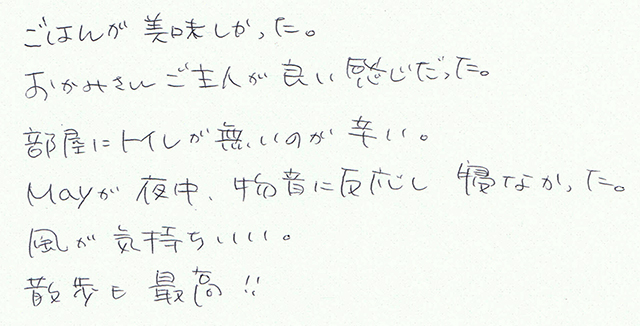 ごはんが美味しかった。
おかみさんご主人が良い感じだった。
部屋にトイレが無いのが辛い。
Mayが夜中、物音に反応し寝なかった。
風が気持ちいい。
散歩も最高!!